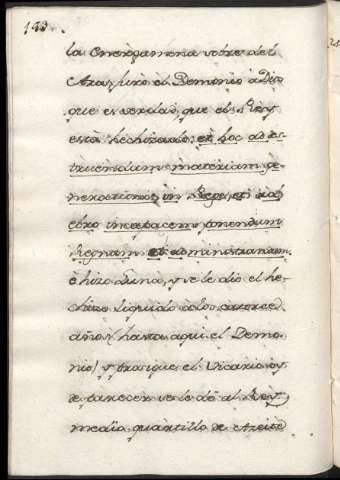 133
la Energumena sobre del
Ara, juró el Demonio à Dios
que es verdad, que el Rey
està hechizado: et hoc ad des
truendam materiam ge
nerationis in Rege, et ad
eum incapacem ponendum
Regnum et administrandum.
è hizo luna, y se le dio el he
chizo liquido à los catorce
años (hasta aqui el Demo
nio) y para que el Vicario es
de parecer se le dè al Rey
medio quartillo de Azeite